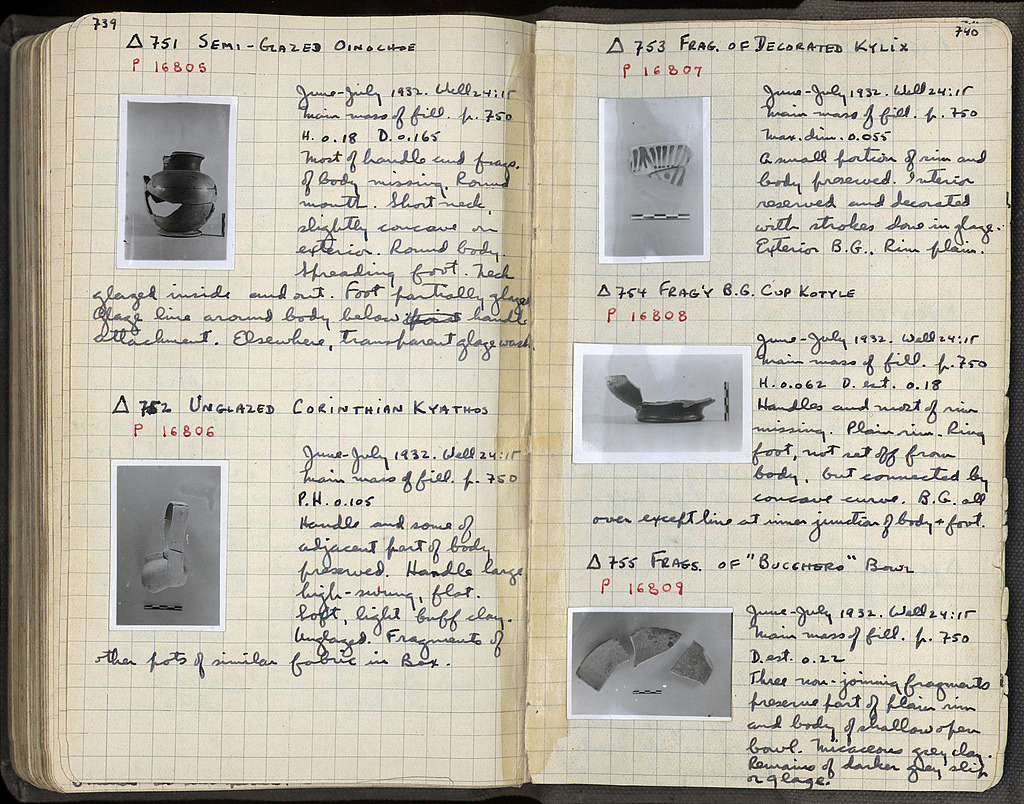 739
Δ 751 SEMI-GLAZED OINOCHOE
P 16805
June-July 1932. Well 24:15
Main mass of fill. p. 750
H. 0.18 D. 0.165
Most of handle and frags.
of body missing. Round
mouth. Short neck,
slightly concave on
exterior. Round body.
Spreading foot. Neck
glazed inside and out. Foot partially glazed
Glaze line around body below handle
attachment. Elsewhere, transparent glaze wash.
Δ 752 UNGLAZED CORINTHIAN KYATHOS
P 16806
June-July 1932. Well 24:15
Main mass of fill. p. 750
P.H. 0.105
Handle and some of
adjacent part of body
preserved. Handle large
high-swung, flat.
Soft, light buff clay.
Unglazed. Fragments of
other pots of similar fabric in Box.
740
Δ 753 FRAG. OF DECORATED KYLIX
P 16807
June-July 1932. Well 24:15
Main mass of fill. p. 750
Max. dim. 0.055
A small portion of rim and
body preserved. Interior
reserved and decorated
with strokes done in glaze.
Exterior B.G.. Rim plain.
Δ 754 FRAG'Y B.G. CUP KOTYLE
P 16808
June-July 1932. Well 24:15
Main mass of fill. p. 750
H. 0.062 D. est. 0.18
Handles and most of rim
missing. Plain rim. Ring
foot, not set off from
body, but connected by
concave curve. B.G. all
over except line at inner junction of body + foot.
Δ 755 FRAGS. OF "BUCCHERO" BOWL
P 16809
June-July 1932. Well 24:15
Main mass of fill. p. 750
D. est. 0.22
Three non-joining fragments
preserve part of plain rim
and body of shallow open
bowl. Micaceous grey clay.
Remains of darker grey slip
or glaze.